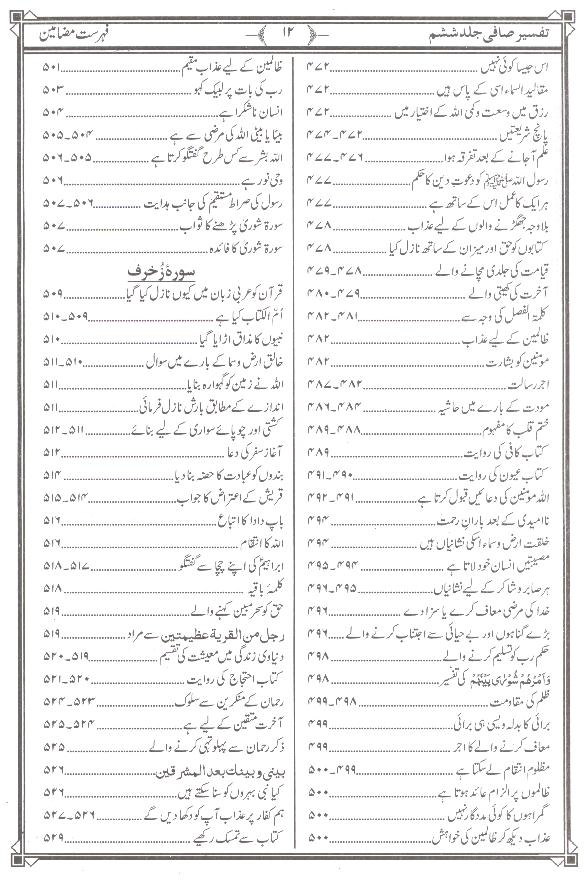 تفسیر صافی جلد ششم ۱۲ فہرست مضامین
اس جیسا کوئی نہیں ۴۷۲
مقالید السماء اسی کے پاس ہیں ۴۷۲
رزق میں وسعت و کمی اللہ کے اختیار میں ۴۷۲
پانچ شریعتیں ۴۷۲۔۴۷۴
علم آ جانے کے بعد تفرقہ ہوا ۴۷۶۔۴۷۷
رسول اللہ ﷺ کو دعوتِ دین کا حکم ۴۷۷
ہر ایک کا عمل اس کے ساتھ ہے ۴۷۷
بلا وجہ جھگڑنے والوں کے لیے عذاب ۴۷۸
کتابوں کو حق اور میزان کے ساتھ نازل کیا ۴۷۸
قیامت کی جلدی مچانے والے ۴۷۸۔۴۷۹
آخرت کی کھیتی والے ۴۷۹۔۴۸۰
کلمۃ الفصل کی وجہ سے ۴۸۱۔۴۸۲
ظالمین کے لیے عذاب ۴۸۲
مومنین کو بشارت ۴۸۲
اجر رسالت ۴۸۲۔۴۸۷
مودت کے بارے میں حاشیہ ۴۸۴۔۴۸۶
ختم قلب کا مفہوم ۴۸۸۔۴۸۹
کتاب کافی کی روایت ۴۸۹
کتاب عیون کی روایت ۴۹۰۔۴۹۱
اللہ مومنین کی دعائیں قبول کرتا ہے ۴۹۱۔۴۹۲
ناامیدی کے بعد باران رحمت ۴۹۴
خلقت ارض و سماء اسکی نشانیاں ہیں ۴۹۴
مصیبتیں انسان خود لاتا ہے ۴۹۴۔۴۹۵
ہر صابر و شاکر کے لیے نشانیاں ۴۹۵۔۴۹۶
خدا کی مرضی معاف کرے یا سزا دے ۴۹۶
بڑے گناہوں اور بے حیائی سے اجتناب کرنے والے ۴۹۶
حکم رب کو تسلیم کرنے والے ۴۹۸
وَاَمْرُهُمْ شُوْرٰی بَیْنَهُمْ کی تفسیر ۴۹۸
ظلم کی مقاومت ۴۹۸۔۴۹۹
برائی کا بدلہ ویسی ہی برائی ۴۹۹
معاف کرنے والے کا اجر ۴۹۹
مظلوم انتقام لے سکتا ہے ۴۹۹۔۵۰۰
ظالموں پر الزام عائد ہوتا ہے ۵۰۰
گمراہوں کا کوئی مددگار نہیں ۵۰۰
عذاب دیکھ کر ظالمین کی خواہش ۵۰۰
ظالمین کے لیے عذاب مقیم ۵۰۱
رب کی بات پر لبیک کہو ۵۰۳
انسان ناشکرا ہے ۵۰۴
بیٹا یا بیٹی اللہ کی مرضی سے ہے ۵۰۴۔۵۰۵
اللہ بشر سے کس طرح گفتگو کرتا ہے ۵۰۵۔۵۰۶
وحی نور ہے ۵۰۶
رسول کی صراط مستقیم کی جانب ہدایت ۵۰۶۔۵۰۷
سورۂ شوریٰ پڑھنے کا ثواب ۵۰۷
سورۂ شوریٰ کا فائدہ ۵۰۷
سورۂ زُخرف
قرآن کو عربی زبان میں کیوں نازل کیا گیا ۵۰۹
اُمّ الکتاب کیا ہے ۵۰۹۔۵۱۰
نبیوں کا مذاق اڑایا گیا ۵۱۰
خالق ارض و سما کے بارے میں سوال ۵۱۰۔۵۱۱
اللہ نے زمین کو گہوارہ بنایا ۵۱۱
اندازے کے مطابق بارش نازل فرمائی ۵۱۱
کشتی اور چوپائے سواری کے لیے بنائے ۵۱۱۔۵۱۲
آغاز سفر کی دعا ۵۱۲
بندوں کو عبادت کا حصّہ بنا دیا ۵۱۴
قریش کے اعتراض کا جواب ۵۱۴۔۵۱۵
باپ دادا کا اتباع ۵۱۶
اللہ کا انتقام ۵۱۶
ابراہیمؑ کی اپنے چچا سے گفتگو ۵۱۷۔۵۱۸
کلمۂ باقیہ ۵۱۸
حق کو سحر مبین کہنے والے ۵۱۹
رجل من القرية عظيمتين سے مراد ۵۱۹
دنیاوی زندگی میں معیشت کی تقسیم ۵۱۹۔۵۲۰
کتاب احتجاج کی روایت ۵۲۰۔۵۲۱
رحمان کے منکرین سے سلوک ۵۲۳۔۵۲۴
آخرت متقین کے لیے ہے ۵۲۴۔۵۲۵
ذکر رحمان سے پہلو تہی کرنے والے ۵۲۵
بینی وبینك بعد المشرقین ۵۲۶
کیا نبی بہروں کو سنا سکتے ہیں ۵۲۶
ہم کفار پر عذاب آپ کو دکھا دیں گے ۵۲۶۔۵۲۷
کتاب سے تمسک رکھیے ۵۲۹